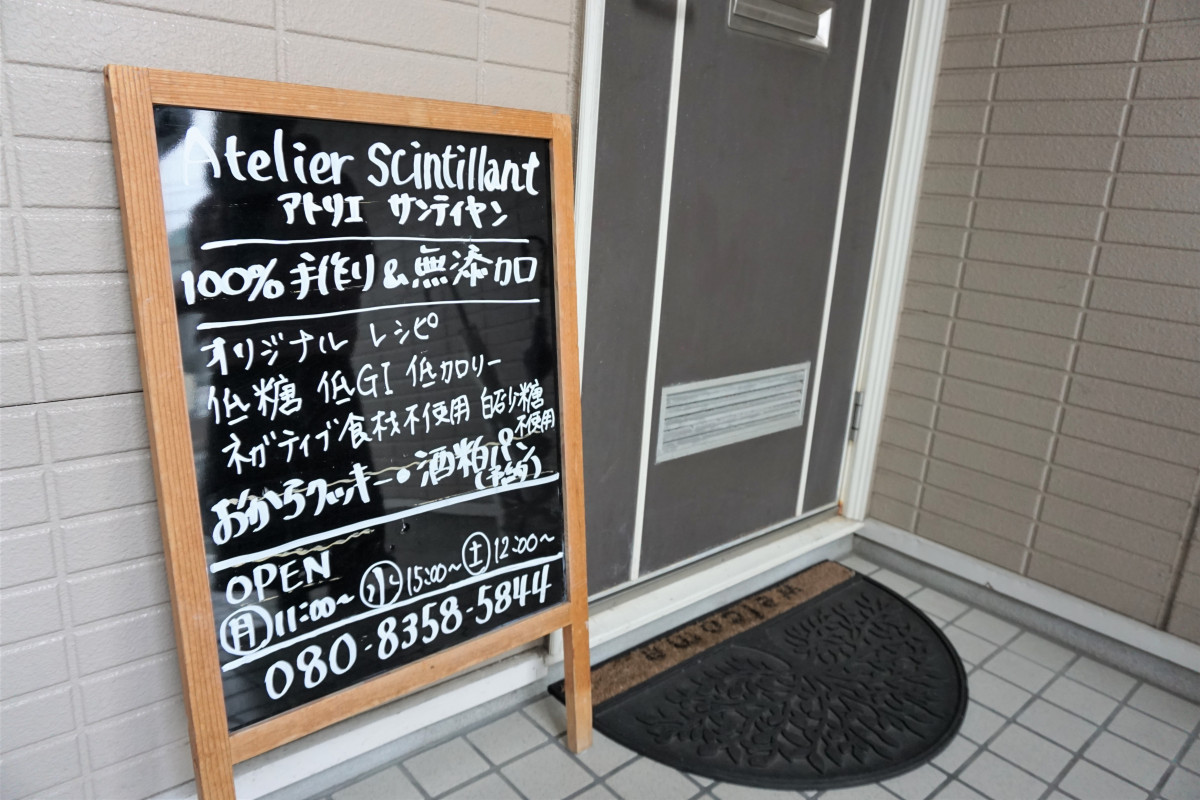 Atelier Scintillant
アトリエ サンティヤン
100% 手作り & 無添加
オリジナル レシピ
低糖 低GI 低カロリー
ネガティブ食材不使用 白砂糖不使用
おからクッキー・酒粕パン(予約)
OPEN
月 11:00~ 水 15:00~ 土 12:00~
080-8358-5844
welcome